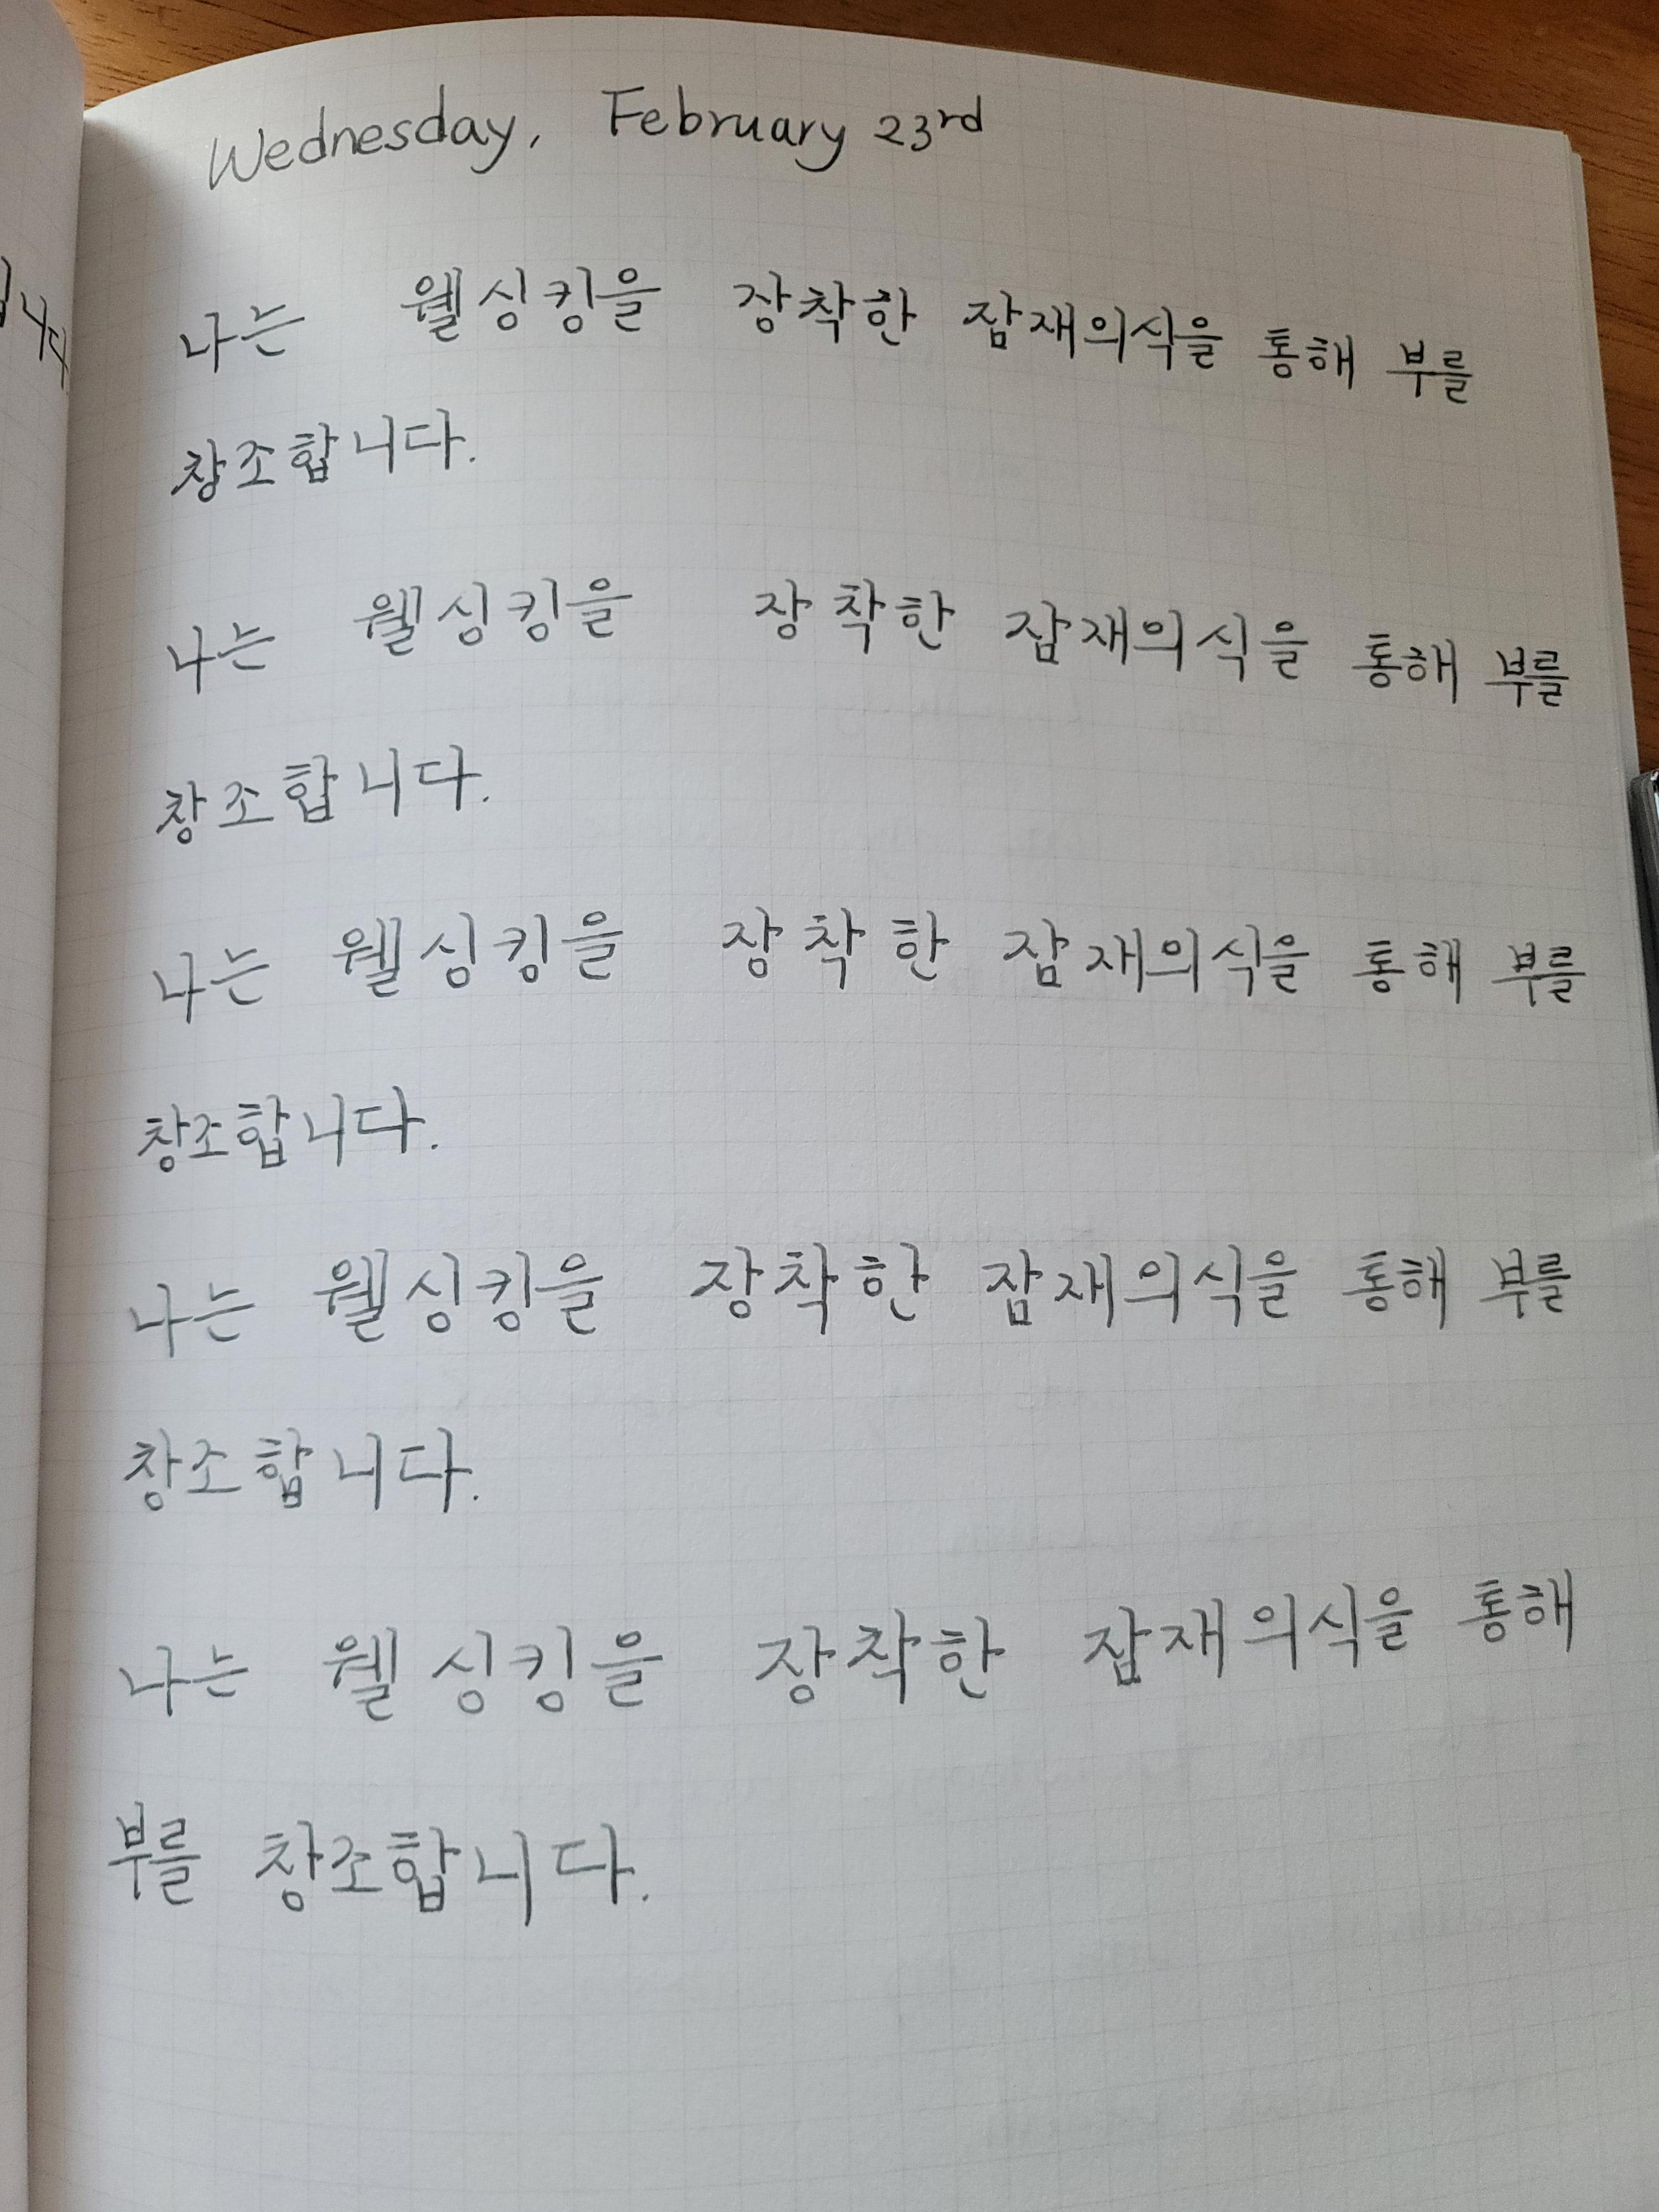 Wednesday, February 23rd
나는 웰싱킹을 장착한 잠재의식을 통해 부를
창조합니다.
나는 웰싱킹을 장착한 잠재의식을 통해 부를
창조합니다.
나는 웰싱킹을 장착한 잠재의식을 통해 부를
창조합니다.
나는 웰싱킹을 장착한 잠재의식을 통해 부를
창조합니다.
나는 웰싱킹을 장착한 잠재의식을 통해
부를 창조합니다.